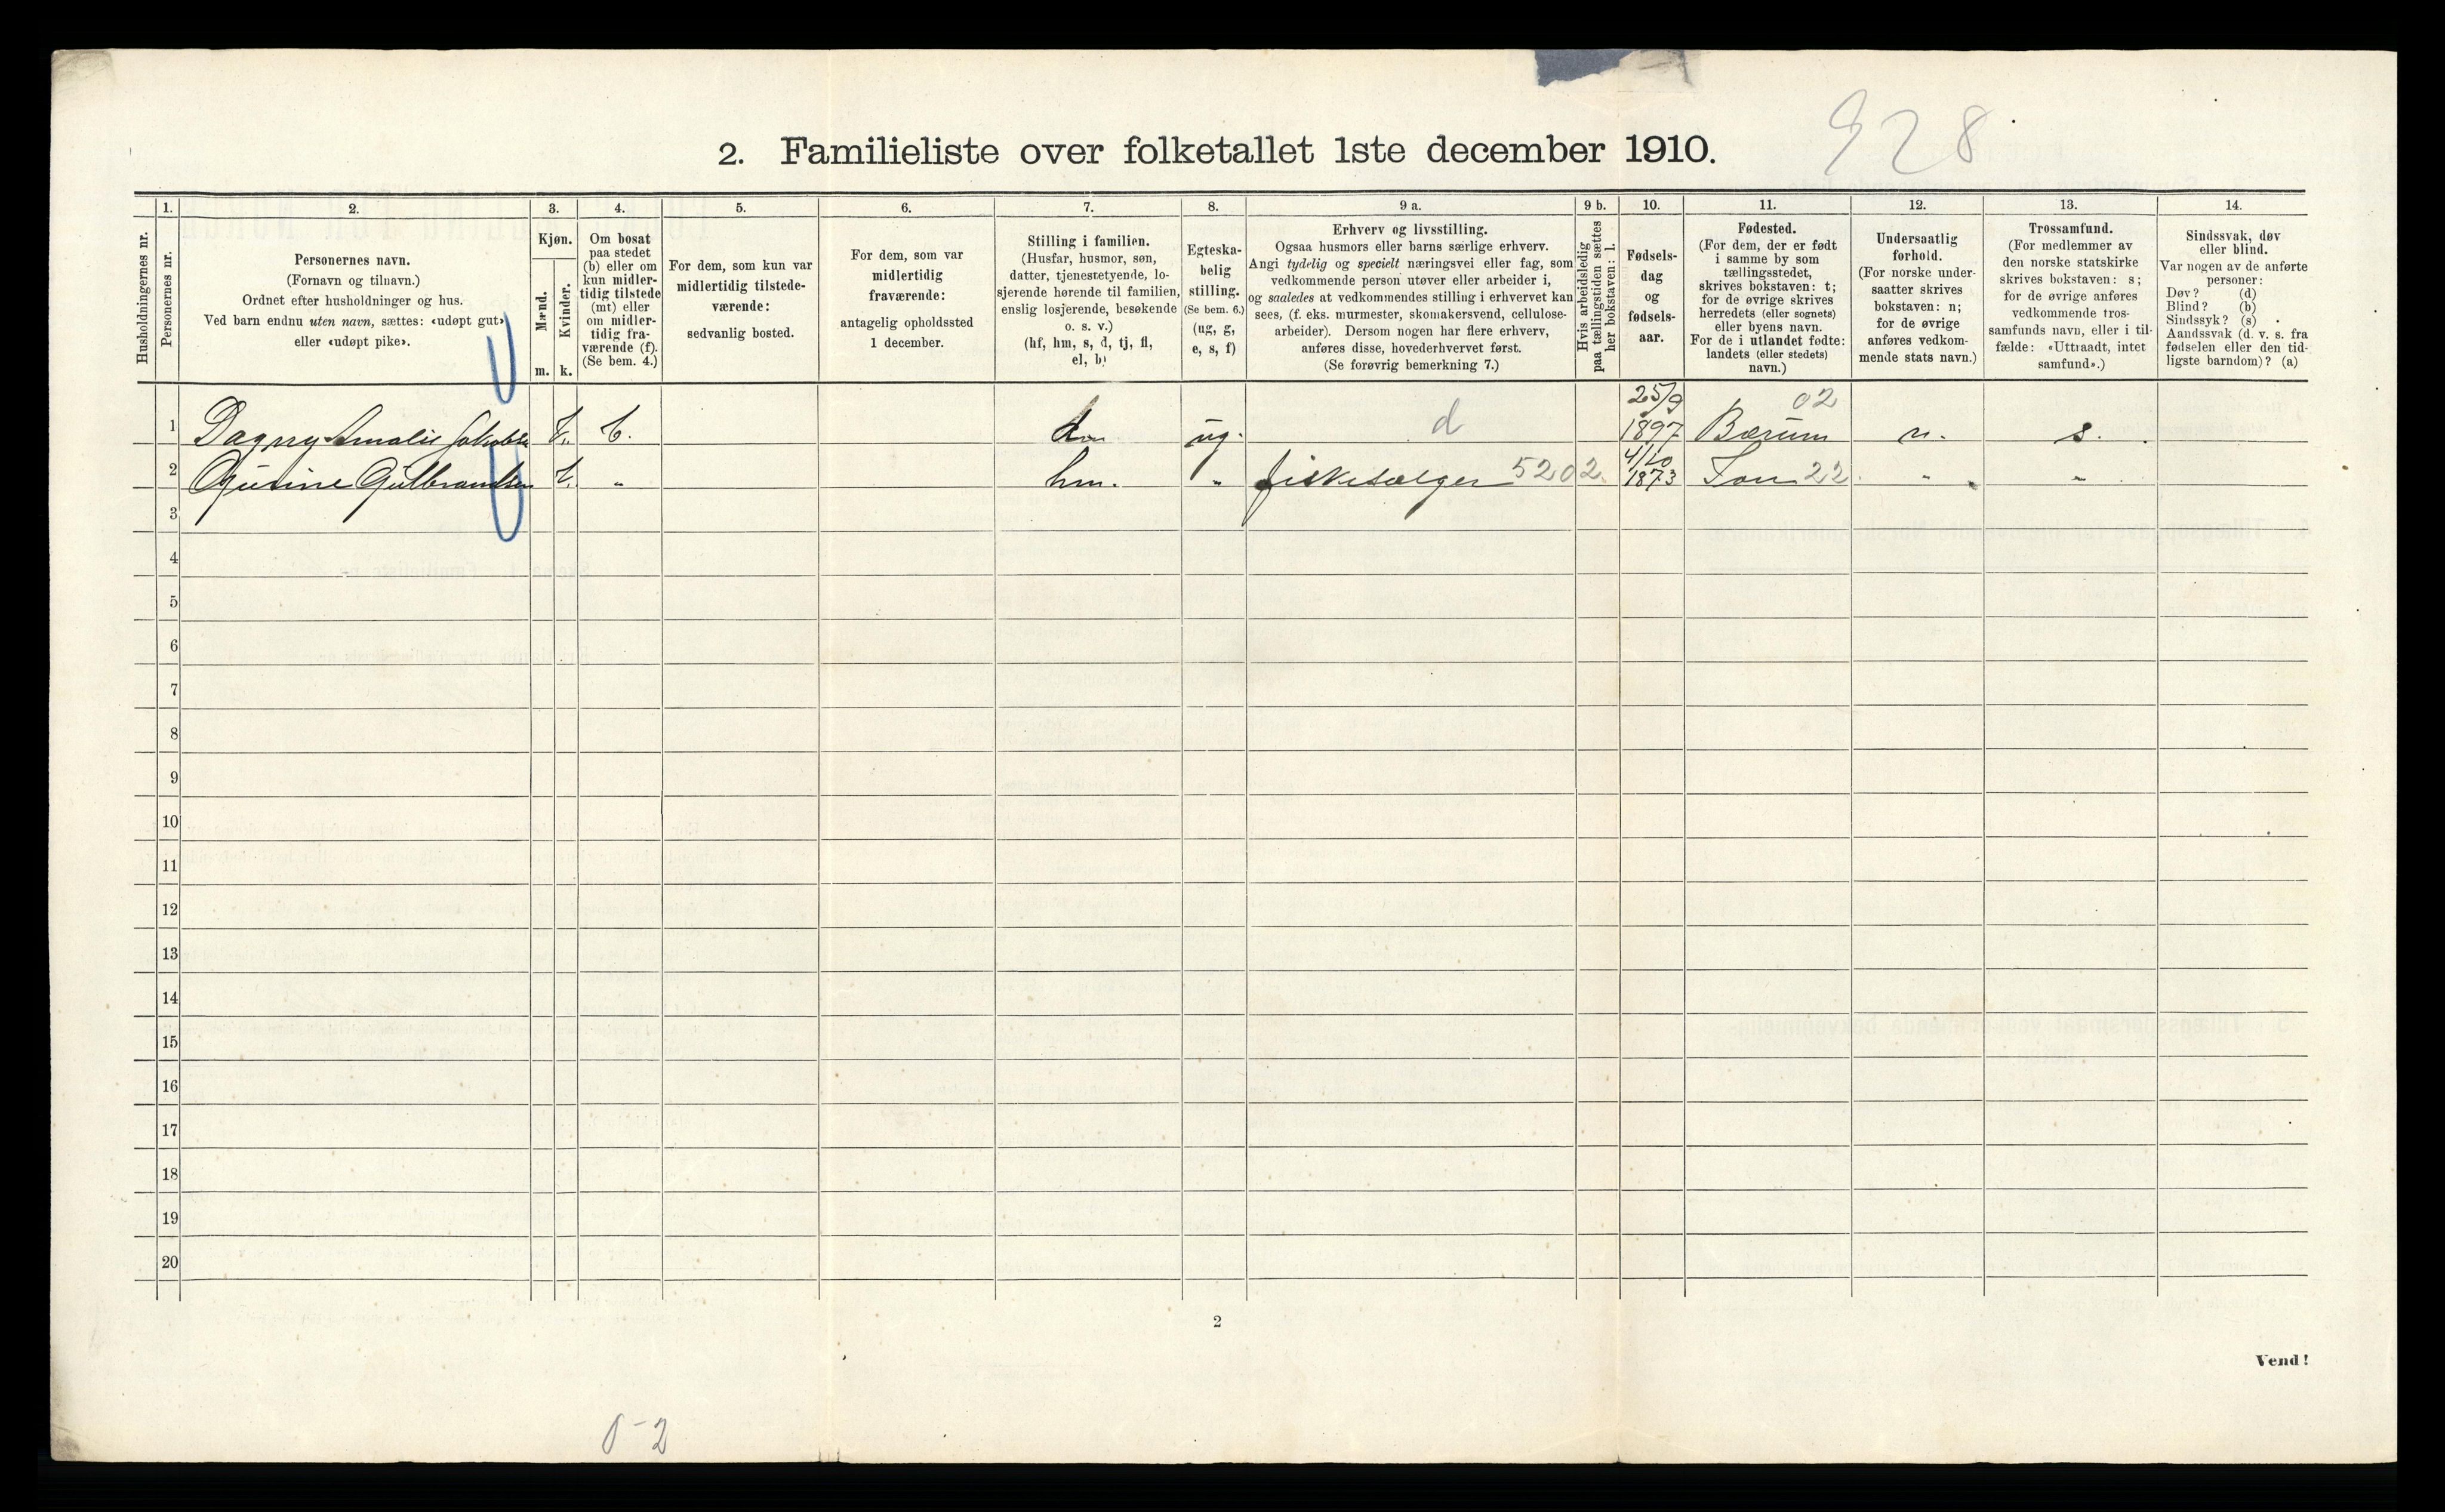 928
2. Familieliste over folketallet 1ste december 1910.
Husholdningernes nr.
1.
Personernes nr.
2.
Personernes navn.
(Fornavn og tilnavn.)
Ordnet efter husholdninger og hus.
Ved barn endnu uten navn, sættes: «udøpt gut»
eller «udøpt pike».
3.
Kjøn.
Mænd.
Kvinder.
m. k.
4.
Om bosat
paa stedet
(b) eller om
kun midler-
tidig tilstede
(mt) eller
om midler-
tidig fra-
værende (f).
(Se bem. 4.)
5.
For dem, som kun var
midlertidig tilstede-
værende:
sedvanlig bosted.
6.
For dem, som var
midlertidig
fraværende:
antagelig opholdssted
1 december.
7.
Stilling i familien.
(Husfar, husmor, søn,
datter, tjenestetyende, lo-
sjerende hørende til familien,
enslig losjerende, besøkende
o. s. v.)
(hf, hm, s, d, tj, fl,
el, b)
8.
Egteska-
belig
stilling.
(Se bem. 6.)
(ug, g,
e, s, f)
9 a.
Erhverv og livsstilling.
Ogsaa husmors eller barns særlige erhverv.
Angi tydelig og specielt næringsvei eller fag, som
vedkommende person utøver eller arbeider i,
og saaledes at vedkommendes stilling i erhvervet kan
sees, (f. eks. murmester, skomakersvend, cellulose-
arbeider). Dersom nogen har flere erhverv,
anføres disse, hovederhvervet først.
(Se forøvrig bemerkning 7.)
9 b.
Hvis arbeidsledig
paa tællingstiden sættes
her bokstaven: l.
10.
Fødsels-
dag
og
fødsels-
aar.
11.
Fødested.
(For dem, der er født
i samme by som
tællingsstedet,
skrives bokstaven: t;
for de øvrige skrives
herredets (eller sognets)
eller byens navn.
For de i utlandet fødte:
landets (eller stedets)
navn.)
12.
Undersaatlig
forhold.
(For norske under-
saatter skrives
bokstaven: n;
for de øvrige
anføres vedkom-
mende stats navn.)
13.
Trossamfund.
(For medlemmer av
den norske statskirke
skrives bokstaven: s;
for de øvrige anføres
vedkommende tros-
samfunds navn, eller i til-
fælde: «Uttraadt, intet
samfund».)
14.
Sindssvak, døv
eller blind.
Var nogen av de anførte
personer:
Døv? (d)
Blind? (b)
Sindssyk? (s)
Aandssvak (d. v. s. fra
fødselen eller den tid-
ligste barndom)? (a)
1 Dagny Amalie Jakobsen k. b. ug. d 25/9 1897 Bærum 02 n. s.
2 Gusine Gulbrandsen k. " hm. " fiskesælger 5202 4/10 1873 Son 22 " "
3
4
5
6
7
8
9
10
11
12
13
14
15
16
17
18
19
20
2
Vend!
0-2